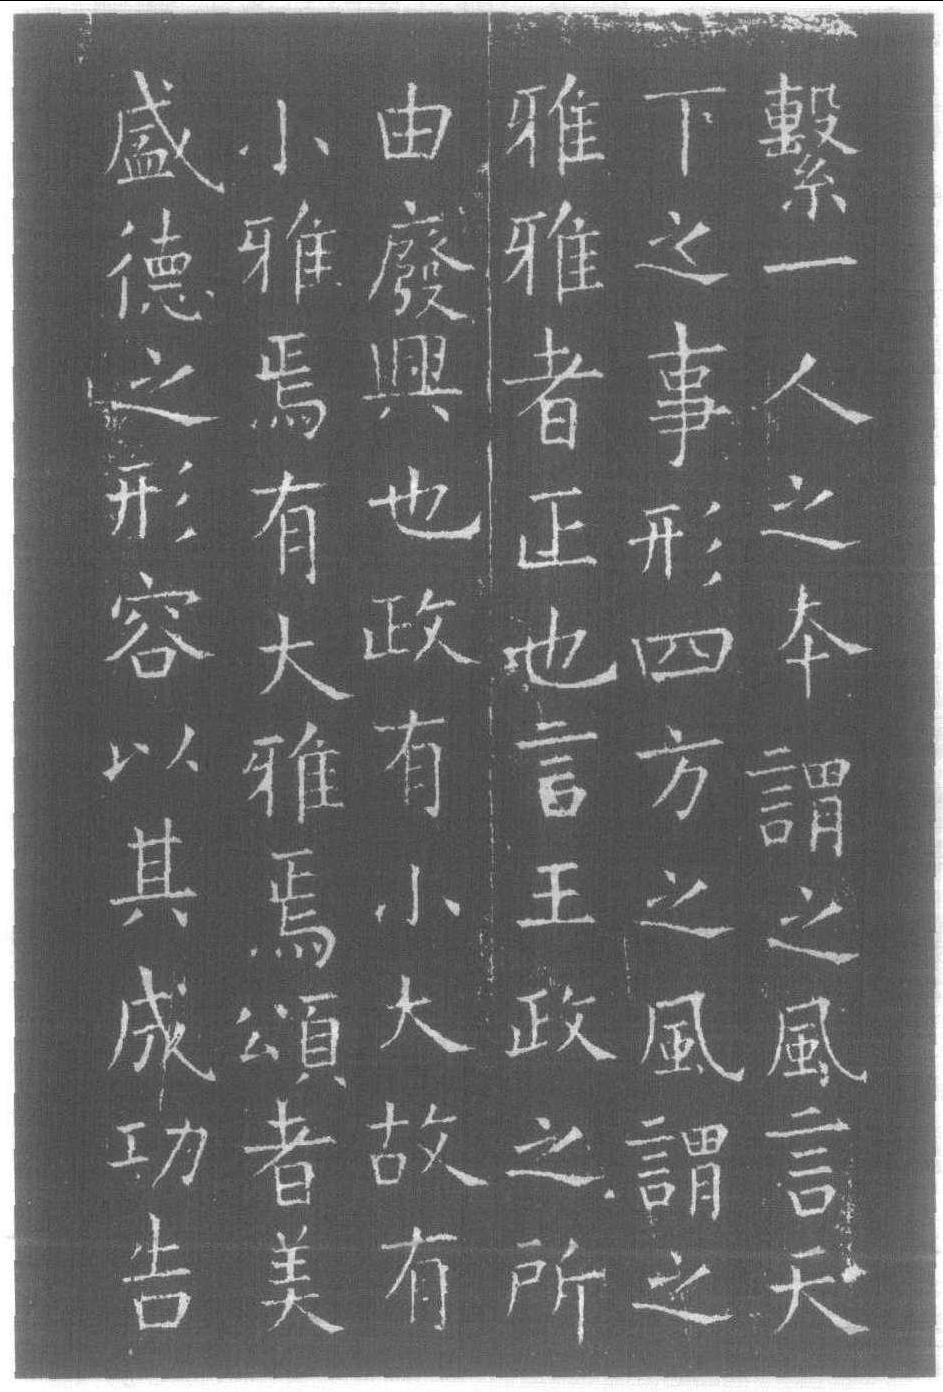 繫一人之本謂之風言天
下之事形四方之風謂之
雅雅者正也言王政之所
由廢興也政有小大故有
小雅焉有大雅焉頌者美
盛德之形容以其成功告